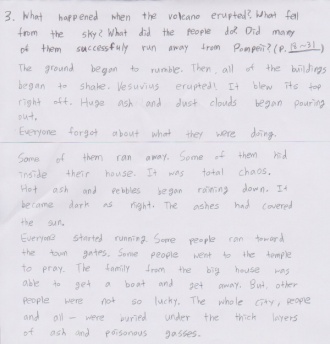 3. What happened when the volcano erupted? What fell
from the sky? What did the people do? Did many
of them successfuly run away from Pompeii? (P. 18~31)
The ground began to rumble. Then all of the buildings
began to shake. Vesuvius erupted! It blew its top
right off. Huge ash and dust clouds began pouring
out.
Everyone forgot about what they were doing.
Some of them ran away. Some of them hid
inside their house. It was total chaos.
Hot ash and pebbles began raining down. It
became dark as night. The ashes had covered
the sun.
Everyone started running. Some people ran toward
the town gates. Some people went to the temple
to pray. The family from the big house was
able to get a boat and get away. But, other
people were not so lucky. The whole city, people
and all - were buried under the thick layers
of ash and poisonous gasses.